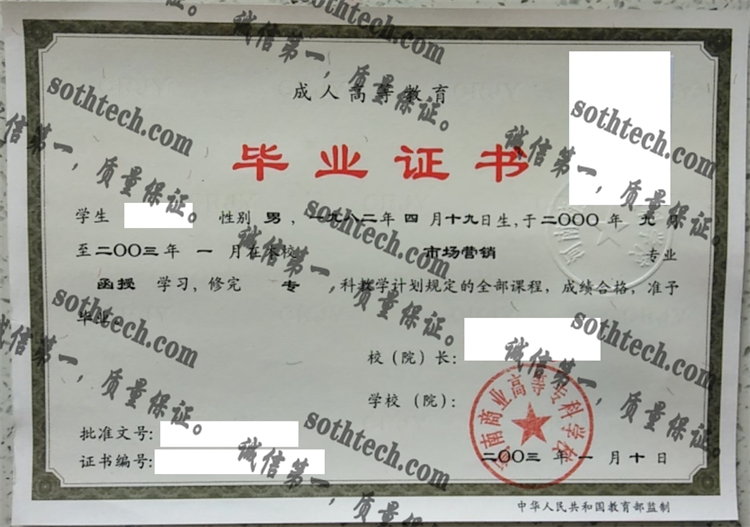 成人高等教育
毕业证书
学生 性别 男 ,一九八二年 四 月十九日生,于二〇〇〇年 九 月
至二〇〇三年 一 月在本校 市场营销 专业
函授 学习,修完 专 科教学计划规定的全部课程,成绩合格,准予
毕业
校(院)长:
学校(院):
批准文号:
证书编号:
二〇〇三年一月十日
南商业高等专科学校
中华人民共和国教育部监制
sothtech.com
诚信第一,质量保证。
sothtech.com
诚信第一,质量保证。
sothtech.com
诚信第一,质量保证。
sothtech.com
诚信第一,质量保证。
sothtech.com
诚信第一,质量保证。
sothtech.com
诚信第一,质量保证。
sothtech.com
诚信第一,质量保证。
sothtech.com